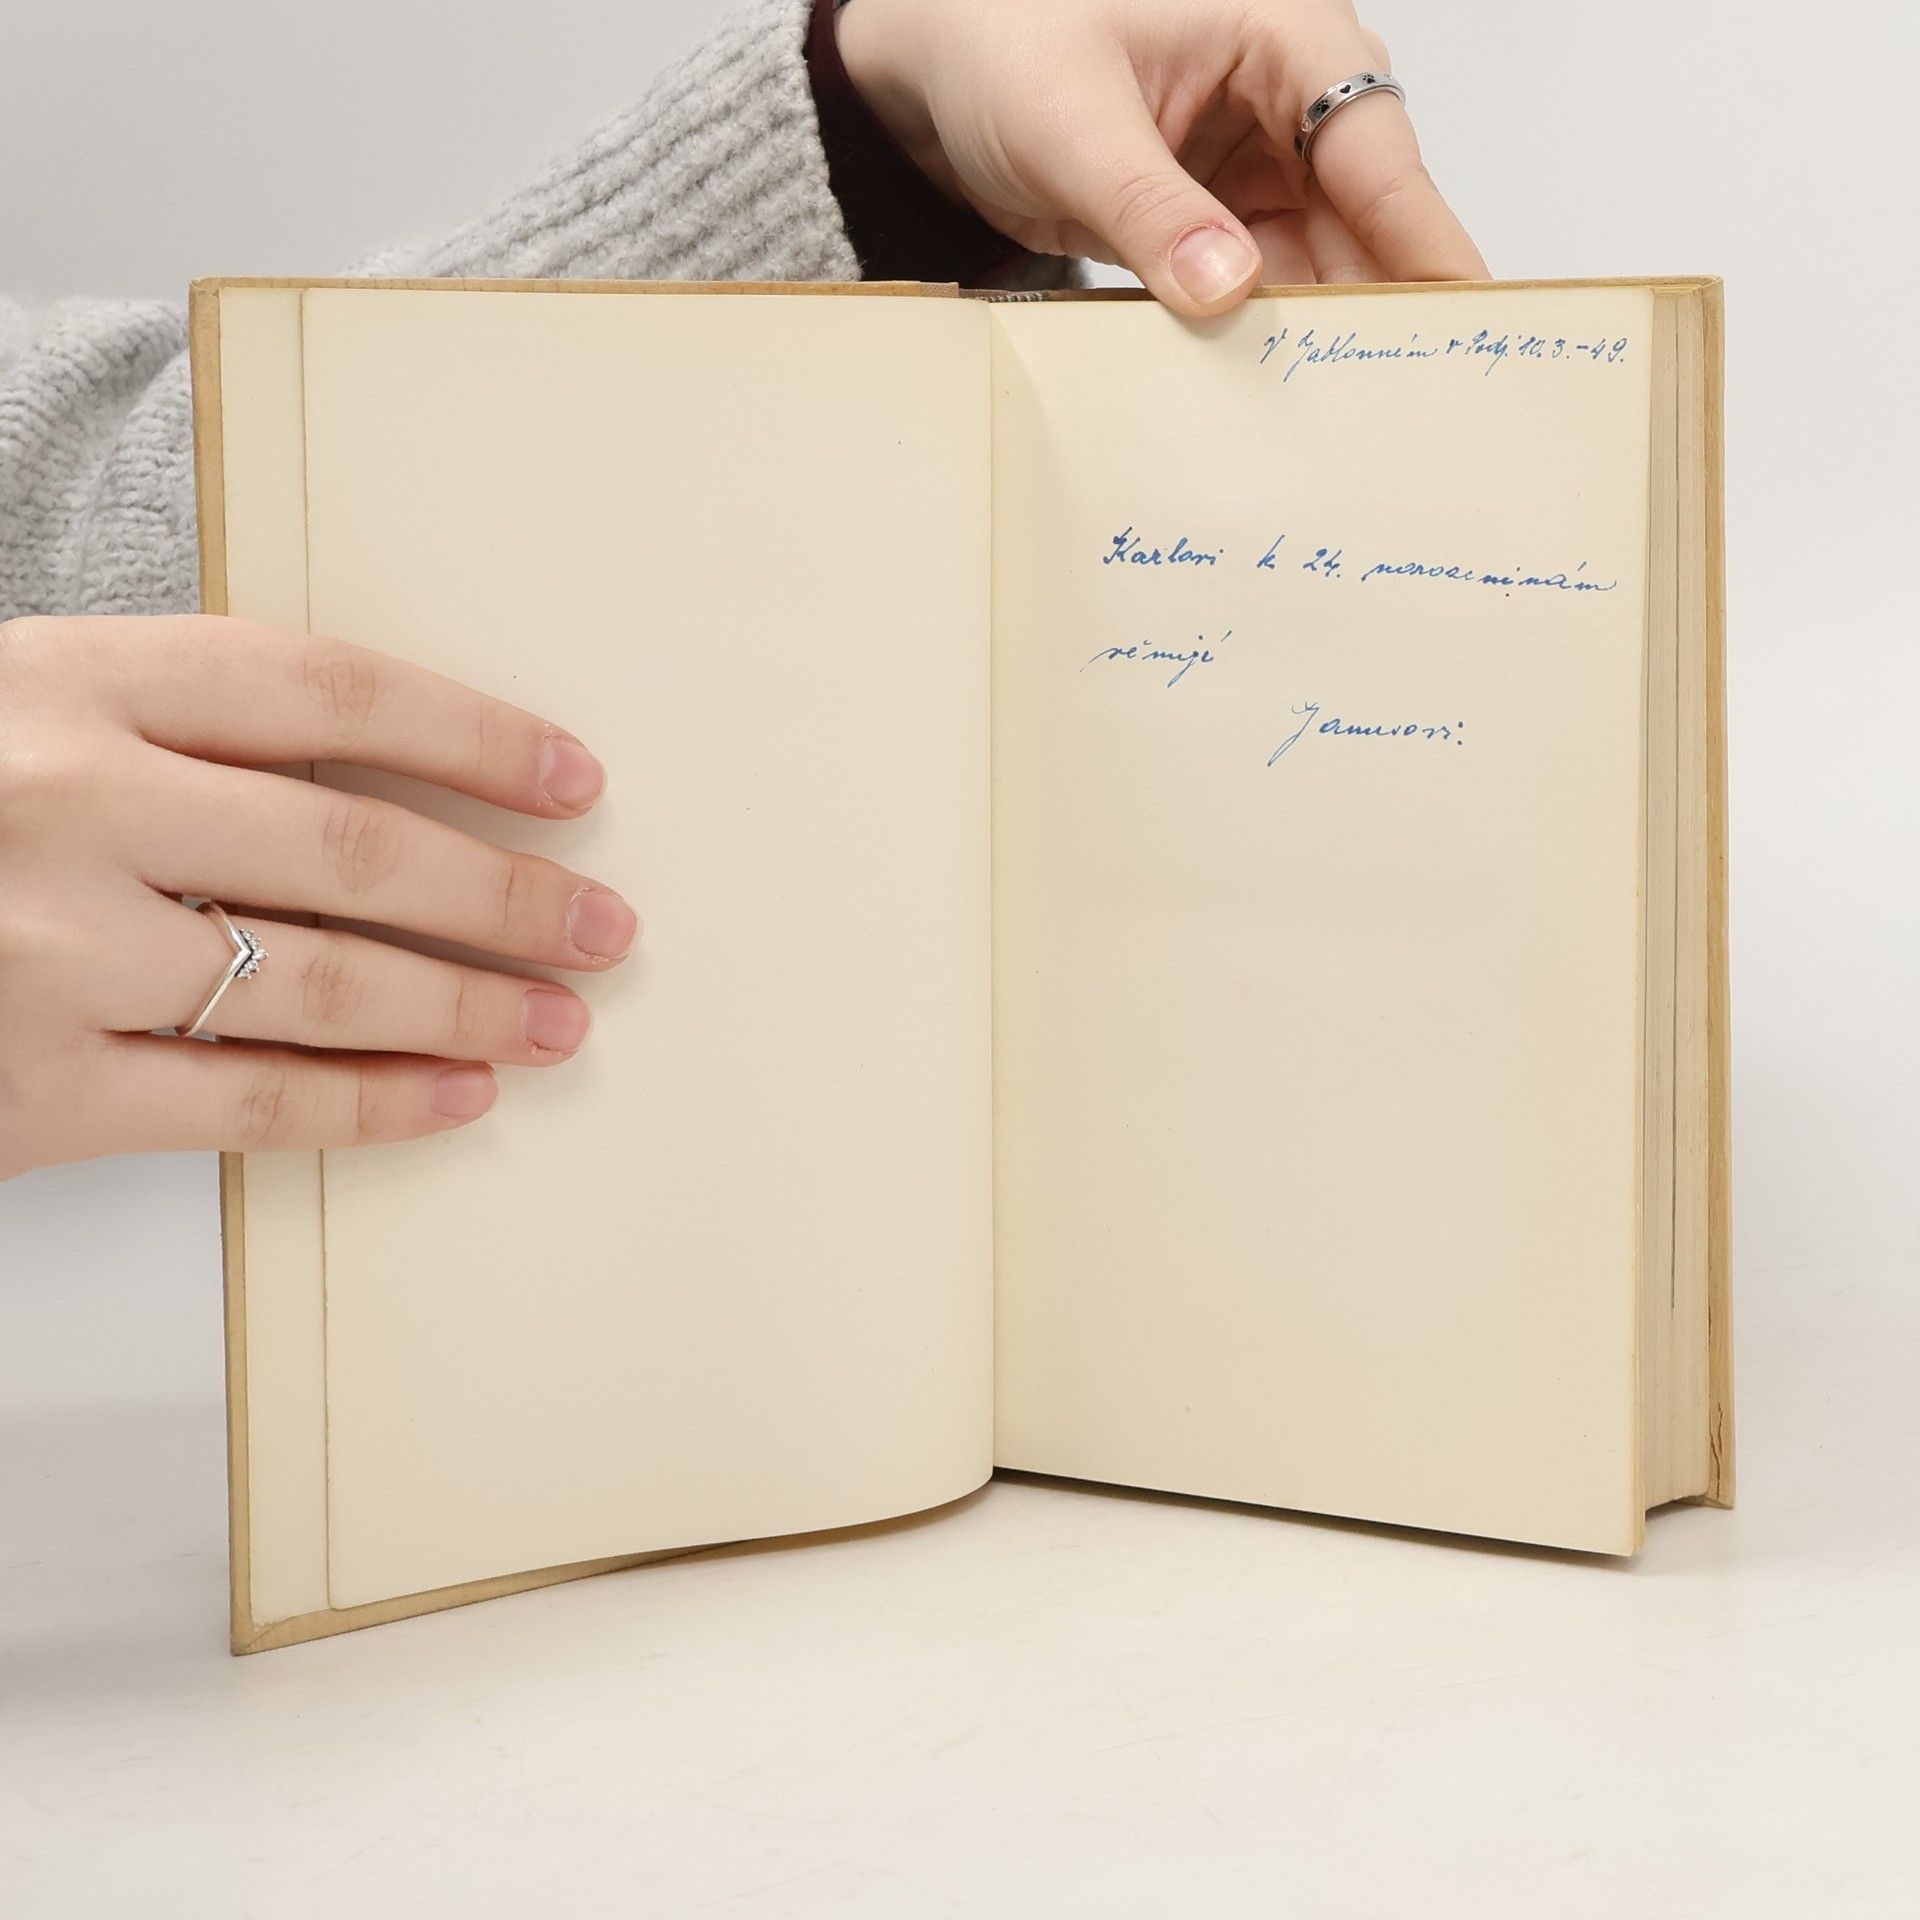 V Jablonném v Podj. 10.3.-49.
Karlovi k 24. narozeninám
věnují